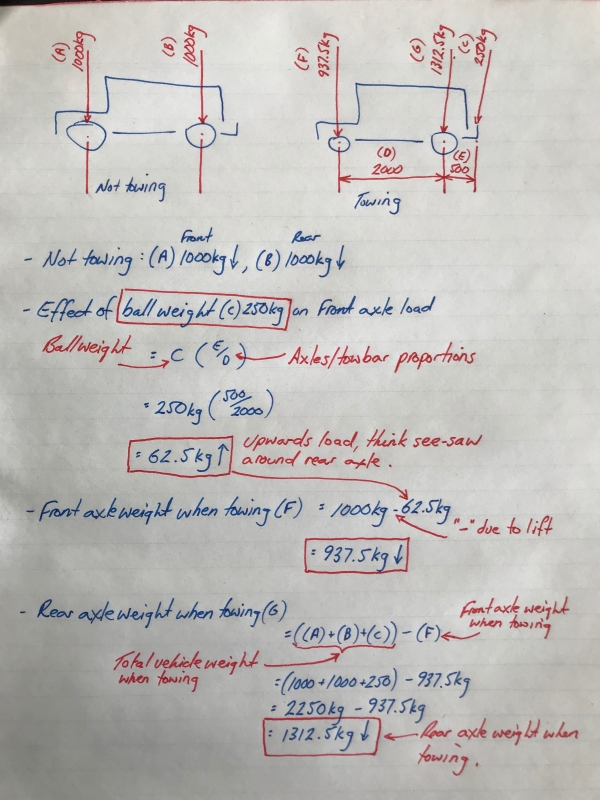 (A) 1000kg
(B) 1000kg
(F) 937.5kg
(G) 1312.5kg
(C) 250kg
(D)
2000
(E)
500
Not towing
Towing
Front Rear
- Not towing : (A) 1000kg↓, (B) 1000kg↓
- Effect of ball weight (C) 250kg on Front axle load
Ball weight = C (E/D) Axles/towbar proportions
= 250kg (500/2000)
= 62.5kg↑ Upwards load, think see-saw
around rear axle.
- Front axle weight when towing (F) = 1000kg - 62.5kg
"-" due to lift
= 937.5kg↓
- Rear axle weight when towing (G)
= ((A)+(B)+(C)) - (F) Front axle weight
when towing
Total vehicle weight
when towing
= (1000+1000+250) - 937.5kg
= 2250kg - 937.5kg
= 1312.5kg↓ Rear axle weight when
towing.